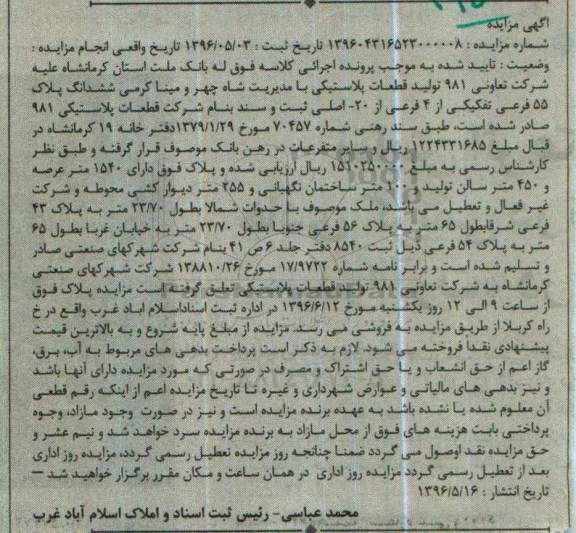 آگهی مزایده
شماره مزایده : ۱۳۹۶۰۴۳۱۶۵۲۳۰۰۰۰۰۸ تاریخ ثبت : ۱۳۹۶/۰۵/۰۳ تاریخ واقعی انجام مزایده :
وضعیت : تایید شده به موجب پرونده اجرائی کلاسه فوق له بانک ملت استان کرمانشاه علیه
شرکت تعاونی ۹۸۱ تولید قطعات پلاستیکی با مدیریت شاه چهر و مینا کرمی ششدانگ پلاک
۵۵ فرعی تفکیکی از ۴ فرعی از ۲۰- اصلی ثبت و سند بنام شرکت قطعات پلاستیکی ۹۸۱
صادر شده است، طبق سند رهنی شماره ۷۰۴۵۷ مورخ ۱۳۷۹/۱/۲۹دفتر خانه ۱۹ کرمانشاه در
قبال مبلغ ۱۲۲۴۳۳۱۶۸۵ ریال و سایر متفرعات در رهن بانک موصوف قرار گرفته و طبق نظر
کارشناس رسمی به مبلغ ۱۵۱۰۲۵۰۰۰۰ ریال ارزیابی شده و پلاک فوق دارای ۱۵۴۰ متر عرصه
و ۴۵۰ متر سالن تولید و ۱۰۰ متر ساختمان نگهبانی و ۲۵۵ متر دیوار کشی محوطه و شرکت
غیر فعال و تعطیل می باشد، ملک موصوف با حدوات شمالا بطول ۲۳/۷۰ متر به پلاک ۴۳
فرعی شرقابطول ۶۵ متر به پلاک ۵۶ فرعی جنوبا بطول ۲۳/۷۰ متر به خیابان غربا بطول ۶۵
متر به پلاک ۵۴ فرعی ذیل ثبت ۸۵۴۰ دفتر جلد ۶ ص ۴۱ بنام شرکت شهرکهای صنعتی صادر
و تسلیم شده است و برابر نامه شماره ۱۷/۹۷۲۲ مورخ ۱۳۸۸۱۰/۲۶ شرکت شهرکهای صنعتی
کرمانشاه به شرکت تعاونی ۹۸۱ تولید قطعات پلاستیکی تعلق گرفته است مزایده پلاک فوق
از ساعت ۹ الی ۱۲ روز یکشنبه مورخ ۱۳۹۶/۶/۱۲ در اداره ثبت اسناداسلام اباد غرب واقع در خ
راه کربلا از طریق مزایده به فروشی می رسد. مزایده از مبلغ پایه شروع و به بالاترین قیمت
پیشنهادی نقدا فروخته می شود. لازم به ذکر است پرداخت بدهی های مربوط به آب، برق،
گاز اعم از حق انشعاب و یا حق اشتراک و مصرف در صورتی که مورد مزایده دارای آنها باشد
و نیز بدهی های مالیاتی و عوارض شهرداری و غیره تا تاریخ مزایده اعم از اینکه رقم قطعی
آن معلوم شده یا نشده باشد به عهده برنده مزایده است و نیز در صورت وجود مازاد، وجوه
پرداختی بابت هزینه های فوق از محل مازاد به برنده مزایده سرد خواهد شد و نیم عشر و
حق مزایده نقد اوصول می گردد ضمنا چنانجه روز مزایده تعطیل رسمی گردد، مزایده روز اداری
بعد از تعطیل رسمی گردد مزایده روز اداری در همان ساعت و مکان مقرر برگزار خواهید شد –
تاریخ انتشار : ۱۳۹۶/۵/۱۶
محمد عباسی- رئیس ثبت اسناد و املاک اسلام آباد غرب